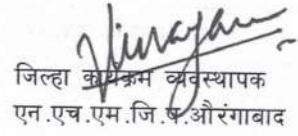 जिल्हा कार्यक्रम व्यवस्थापक
एन.एच.एम.जि.प.औरंगाबाद